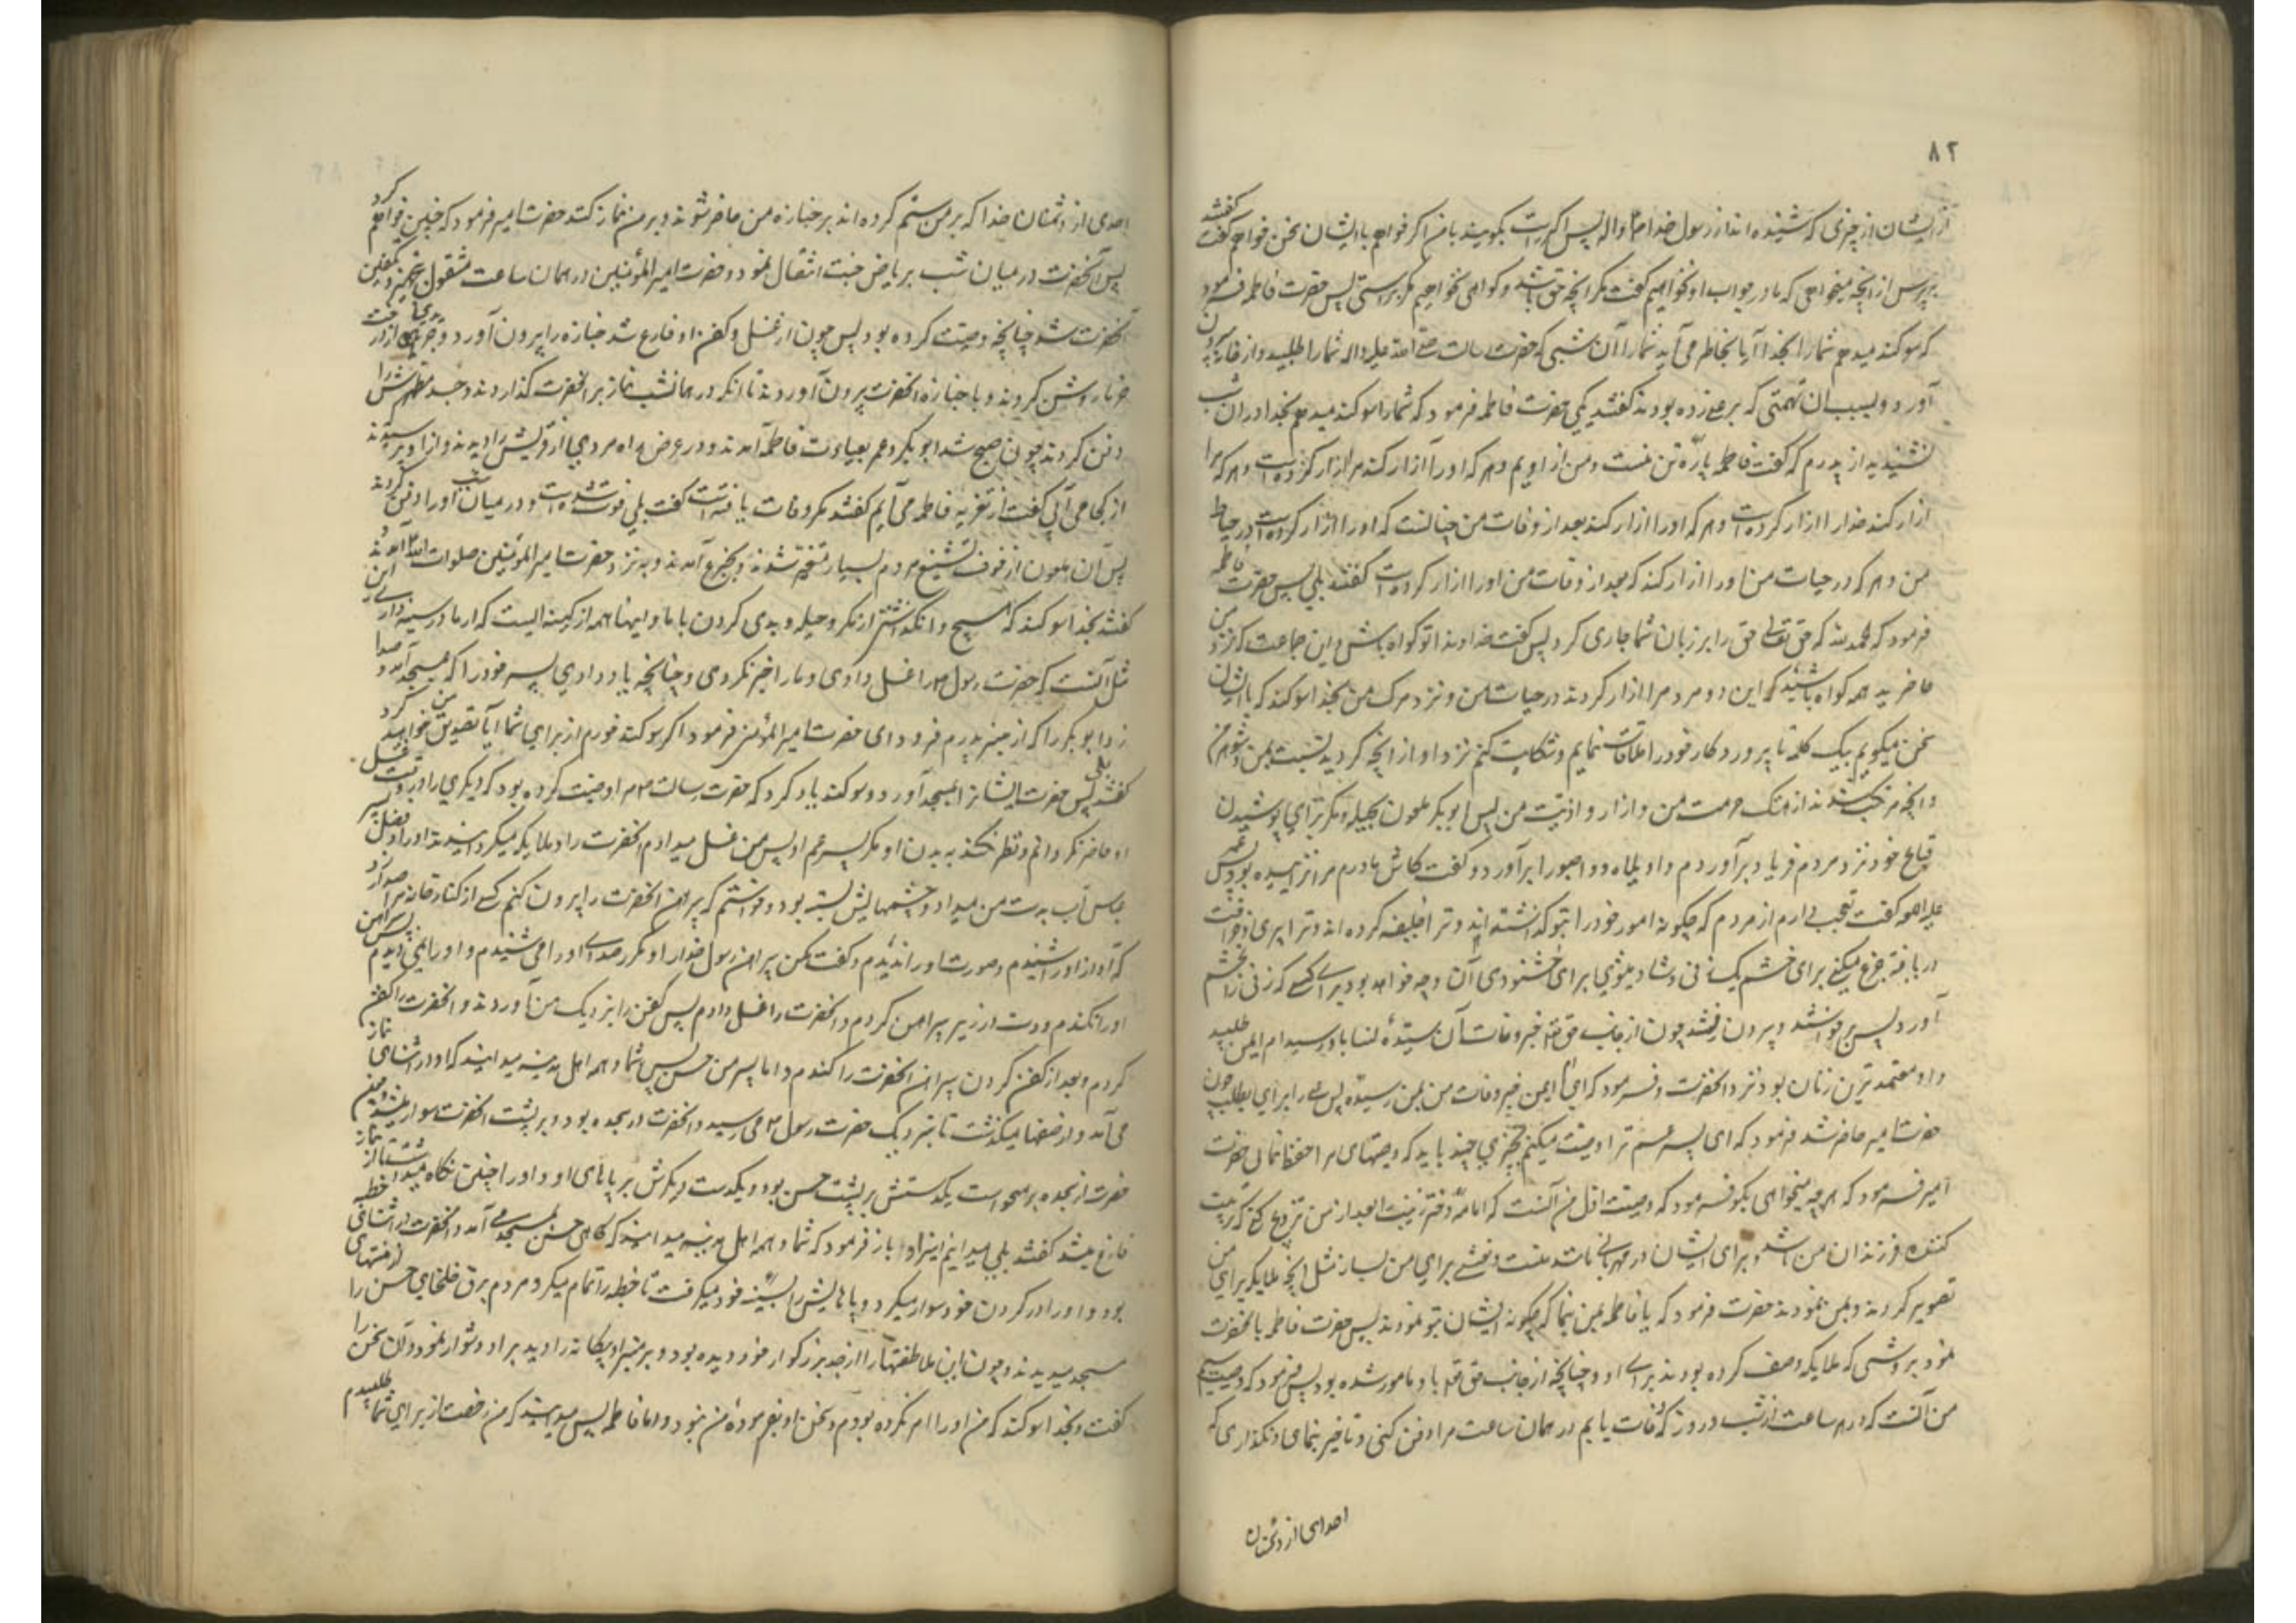 ۸۲
از ایشان از چیزی که شنیده اند از رسول خدا ص و اله پس اگر راست بگویند با من اگر خواهم با ایشان سخن خواهم گفت گفتند
بپرس از آنچه میخواهی که ما در جواب او نخواهیم گفت مگر آنچه حق باشد و گواهی نخواهیم مگر براستی پس حضرت فاطمه فرمود
که سوگند میدهم شما را بخدا آیا بخاطر می آید شما را آن شبی که حضرت رسالت صلی الله علیه واله شما را طلبید و از خانه بیرون
آورد و بسبب آن تهمتی که بر علی زده بودند گفتند بلی حضرت فاطمه فرمود که شما را سوگند میدهم بخدا در آن شب
نشنیدید از پدرم که گفت فاطمه پاره تن منست و من از اویم و هر که او را آزار کند مرا آزار کرده است و هر که مرا
ازار کند خدا را ازار کرده است و هر که او را ازار کند بعد از وفات من چنانست که او را ازار کرده است در حیات
من و هر که در حیات من او را ازار کند که بعد از وفات من او را ازار کرده است گفتند بلی پس حضرت فاطمه
فرمود که الحمد لله که حق تعالی حق را بر زبان شما جاری کرد پس گفت خداوندا تو گواه باش و این جماعت که نزد من
حاضرید همه گواه باشید که این دو مرد مرا ازار کردند در حیات من و نزد مرگ من بخدا سوگند که با ایشان
سخن نمیگویم بیک کلمه تا پروردکار خود را ملاقات نمایم و شکایت کنم نزد او از آنچه کردید نسبت بمن و شوهرم
و آنچه مرتکب شدند از هتک حرمت من و ازار و اذیت من پس ابوبکر ملعون بحیله و مکر برای پوشیدن
قبایح خود نزد مردم فریاد برآورد و واویلاه و واثبوراه برآورد و گفت کاش مادرم مرا نزاییده بود پس عمر
علیه اللعنه گفت تعجب دارم از مردم که چگونه امور خود را بتو گذاشته اند و ترا خلیفه کرده اند و ترا پیری و خرافت
دریافته جزع میکنی برای خشم یک زنی و شاد میشوی برای خشنودی آن و چه خواهد بود برای کسی که زنی را بخشم
آورد پس برخواستند و بیرون رفتند چون از جانب حق تعالی خبر وفات آن سیده نسا باو رسید ام ایمن طلبید
و او معتمد ترین زنان بود نزد آنحضرت و فرمود که ای ام ایمن خبر وفات من بمن رسیده پس علی را برای من بطلب چون
حضرت امیر حاضر شد فرمود که ای پسر عم ترا وصیت میکنم بچیزی چند باید که وصیتهای مرا حفظ نمائی حضرت
امیر فرمود که هر چه میخواهی بگو فرمود که وصیت اول من آنست که امامه دختر زینب را بعد از من تزویج کنی که تربیت
کننده فرزندان من باشد و برای ایشان در مهربانی مانند منست و نعشی برای من بساز مثل آنچه ملایکه برای من
تصویر کردند و بمن نمودند حضرت فرمود که یا فاطمه بمن بنما که چگونه ایشان بتو نمودند پس حضرت فاطمه بآنحضرت
نمود بروشی که ملایکه وصف کرده بودند برای او و چنانچه از جانب حق تعالی باو مامور شده بود پس فرمود که وصیت سیم
من آنست که در هر ساعت از شب و روز که وفات یابم در همان ساعت مرا دفن کنی و تاخیر ننمای و نگذاری که
احدی از دشمنان
احدی از دشمنان خدا که بر من ستم کرده اند بر جنازه من حاضر شوند و بر من نماز کنند حضرت امیر فرمود که چنین خواهم کرد
پس آنحضرت در میان شب بریاض جنت انتقال نمود و حضرت امیر المؤمنین در همان ساعت مشغول تجهیز و تکفین
آنحضرت شد چنانچه وصیت کرده بود پس چون از غسل و کفن او فارغ شد جنازه را بیرون آورد و جریدهای از درخت
خرما روشن کردند و با جنازه آنحضرت بیرون آوردند تا آنکه در همانشب نماز بر آنحضرت گذاردند و جسد مطهرش را
دفن کردند چون صبح شد ابو بکر و عمر بعیادت فاطمه آمدند و در عرض راه مردی از قریش را دیدند و از او پرسیدند
از کجا می آئی گفت از تعزیه فاطمه می آیم گفتند مگر وفات یافته است گفت بلی فوت شده است و در میان شب او را دفن کردند
پس آن ملعون از خوف تشنیع مردم بسیار متغیر شدند و بجزع آمدند و به نزد حضرت امیر المؤمنین صلوات الله آمدند و
گفتند بخدا سوگند که هیچ وا نگذاشتی از مکر و حیله و بدی کردن با ما و اینها همه از کینه ایست که از ما در سینه داری این
مثل آنست که حضرت رسول ص را غسل دادی و ما را خبر نکردی و چنانچه یاد دادی پسر خود را که بمسجد آمد و صدا
زد ابو بکر را که از منبر پدرم فرود آی حضرت امیر المؤمنین فرمود اگر سوگند خورم از برای شما آیا تصدیق من خواهید کرد
گفتند بلی پس حضرت ایشانرا بمسجد آورد و سوگند یاد کرد که حضرت رسالت ص مرا وصیت کرده بود که دیگری را در وقت غسل
او حاضر نگردانم و نظر نکند به بدن او مگر پسر عم او پس من غسل میدادم آنحضرت را و ملایکه میگردانیدند او را و فضل پسر
عباس آب بدست من میداد و چشمهایش بسته بود و خواستم که پیراهن آنحضرت را بیرون کنم کسی از کنار خانه مرا صدا زد
که آواز او را شنیدم و صورت او را ندیدم و گفت مکن پیراهن رسول خدا را و مکرر صدای او را می شنیدم و او را نمی دیدم پس پیراهن
او را نکندم و دست از زیر پیراهن کردم و آنحضرت را غسل دادم پس کفن را بنزدیک من آوردند و آنحضرت را کفن
کردم و بعد از کفن کردن پیراهن آنحضرت را کندم و اما پسر من حسن پس شما و همه اهل مدینه میدانید که او در اثنای نماز
می آمد و از صفها میگذشت تا بنزدیک حضرت رسول ص می رسید و آنحضرت در سجده بود و بر پشت آنحضرت سوار میشد و چون
حضرت از سجده بر میخواست یکدستش بر پشت حسن بود و یکدست دیگرش بر پاهای او و او را چنین نگاه میداشت تا از نماز
فارغ میشد گفتند بلی میدانیم اینرا و باز فرمود که شما و همه اهل مدینه میدانید که گاهی حسن بمسجد می آمد و آنحضرت در اثنای خطبه
بود و او را در گردن خود سوار میکرد و پاهایش را بسینه خود میگرفت تا خطبه را تمام میکرد و مردم برق خلخالهای حسن را از منتهای
مسجد میدیدند و چون این ملاطفتها را از جد بزرگوار خود دیده بود و بر منبر او بیگانه را دید بر او دشوار نمود و آن سخن را
گفت و بخدا سوگند که من او را امر نکرده بودم و سخن او بفرموده من نبود و اما فاطمه پس میدانید که من رخصت از برای شما طلبیدم